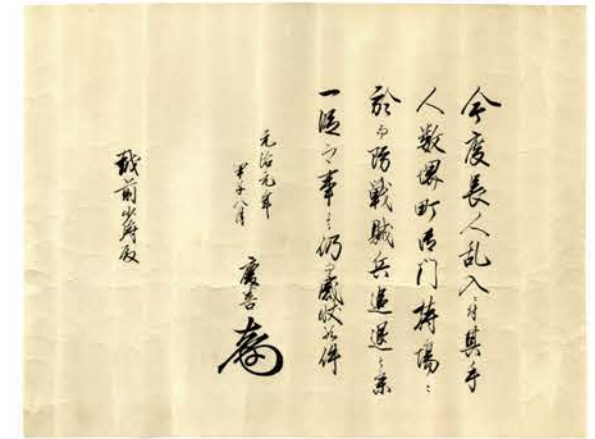 今度長人乱入ニ付其手
人数堺町御门持場ニ
於而防戦賊兵追退候条
一段之事候仍而感状如件
元治元年
甲子八月
慶喜
越前少将殿